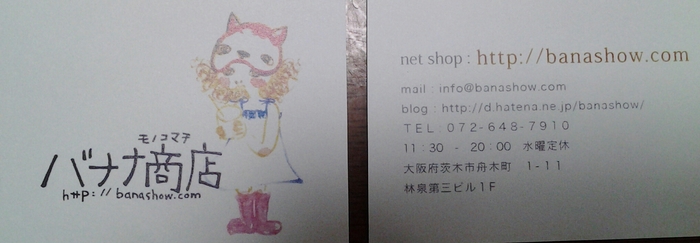 モノコマチ
バナナ商店
http://banashow.com
net shop : http://banashow.com
mail : info@banashow.com
blog : http://d.hatena.ne.jp/banashow/
TEL : 072-648-7910
11:30 - 20:00 水曜定休
大阪府茨木市舟木町 1-11
林泉第三ビル1F